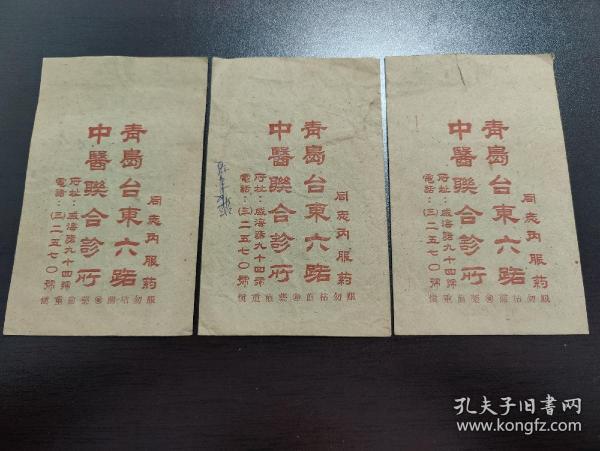 同志内服药
青島台東六路
中醫聯合診所
所址：威海路九十四號
電話：（三）二五七〇號
同志内服药
青島台東六路
中醫聯合診所
所址：威海路九十四號
電話：（三）二五七〇號
同志内服药
青島台東六路
中醫聯合診所
所址：威海路九十四號
電話：（三）二五七〇號
孔夫子旧书网
www.kongfz.com